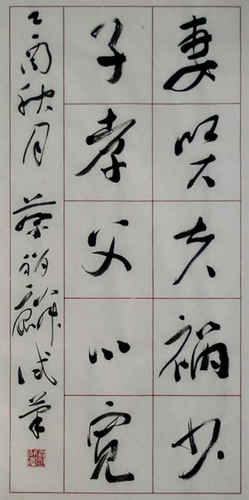 妻贤夫祸少
子孝父心宽
乙酉秋月 蔡麟试笔